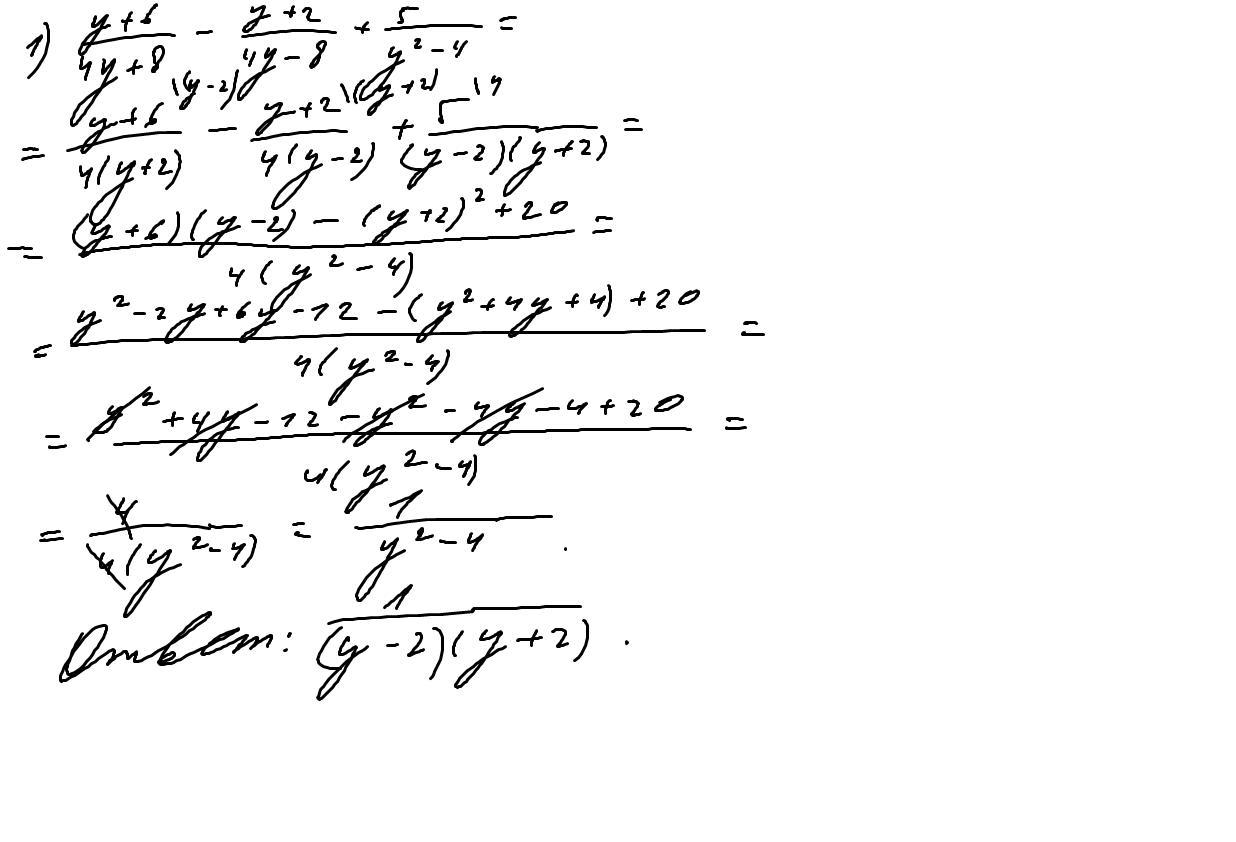 1) (y+6)/(4y+8) - (y+2)/(4y-8) + 5/(y²-4) =
= (y+6)/(4(y+2)) \(y-2) - (y+2)/(4(y-2)) \(y+2) + 5/((y-2)(y+2)) \4 =
= ((y+6)(y-2) - (y+2)²+20)/(4(y²-4)) =
= (y²-2y+6y-12-(y²+4y+4)+20)/(4(y²-4)) =
= (y²+4y-12-y²-4y-4+20)/(4(y²-4)) =
= 4/(4(y²-4)) = 1/(y²-4).
Ответ: 1/((y-2)(y+2)).